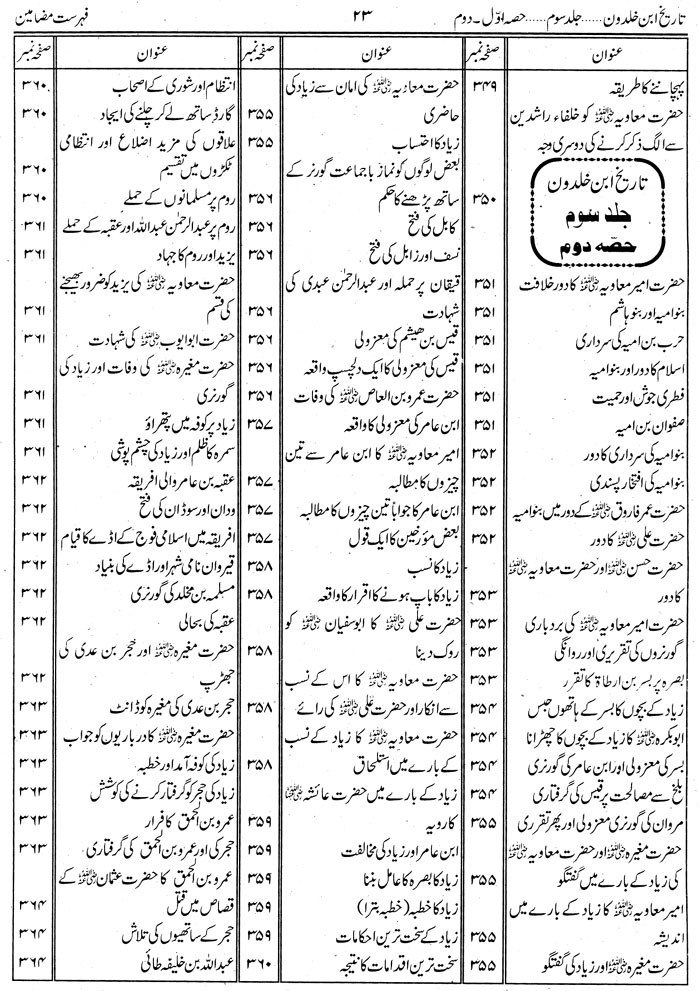 تاریخ ابن خلدون......جلد سوم......حصہ اوّل-دوم ۲۳ فہرست مضامین
عنوان صفحہ نمبر
پہچاننے کا طریقہ ۳۴۹
حضرت معاویہ ﷜ کو خلفاء راشدین
سے الگ ذکر کرنے کی دوسری وجہ
تاریخ ابن خلدون ۳۵۰
جلد سوم
حصہ دوم
حضرت امیر معاویہ ﷜ کا دور خلافت ۳۵۱
بنو امیہ اور بنو ہاشم ۳۵۱
حرب بن امیہ کی سرداری ۳۵۱
اسلام کا دور اور بنو امیہ ۳۵۱
فطری جوش اور حمیت ۳۵۱
صفوان بن امیہ ۳۵۱
بنو امیہ کی سرداری کا دور ۳۵۲
بنو امیہ کی افتخار پسندی ۳۵۲
حضرت عمر فاروق ﷜ کے دور میں بنو امیہ ۳۵۲
حضرت علی ﷜ کا دور ۳۵۲
حضرت حسن ﷜ اور حضرت معاویہ ﷜
کا دور ۳۵۳
حضرت امیر معاویہ ﷜ کی بردباری ۳۵۳
گورنروں کی تقرری اور روانگی ۳۵۳
بصرہ پر بسر بن ارطاۃ کا تقرر ۳۵۳
زیاد کے بچوں کا بسر کے ہاتھوں حبس ۳۵۴
ابوبکرہ ﷜ کا زیاد کے بچوں کا چھڑانا ۳۵۴
بسر کی معزولی اور ابن عامر کی گورنری ۳۵۴
بلخ سے مصالحت پر قیس کی گرفتاری ۳۵۴
مروان کی گورنری معزولی اور پھر تقرری ۳۵۵
حضرت مغیرہ ﷜ اور حضرت معاویہ ﷜
کی زیاد کے بارے میں گفتگو ۳۵۵
امیر معاویہ ﷜ کا زیاد کے بارے میں
اندیشہ ۳۵۵
حضرت مغیرہ ﷜ اور زیاد کی گفتگو ۳۵۵
عنوان صفحہ نمبر
حضرت معاویہ ﷜ کی امان سے زیاد کی
حاضری ۳۵۵
زیاد کا احتساب ۳۵۵
بعض لوگوں کو نماز باجماعت گورنر کے
ساتھ پڑھنے کا حکم ۳۵۶
کابل کی فتح ۳۵۶
نسف اور زابل کی فتح ۳۵۶
قیقان پر حملہ اور عبدالرحمٰن عبدی کی
شہادت ۳۵۶
قیس بن ھیشم کی معزولی ۳۵۶
قیس کی معزولی کا ایک دلچسپ واقعہ ۳۵۶
حضرت عمرو بن العاص ﷜ کی وفات ۳۵۶
ابن عامر کی معزولی کا واقعہ ۳۵۷
امیر معاویہ ﷜ کا ابن عامر سے تین
چیزوں کا مطالبہ ۳۵۷
ابن عامر کا جواباً تین چیزوں کا مطالبہ ۳۵۷
بعض مؤرخین کا ایک قول ۳۵۷
زیاد کا نسب ۳۵۸
زیاد کا باپ ہونے کا اقرار کا واقعہ ۳۵۸
حضرت علی ﷜ کا ابوسفیان ﷜ کو
روک دینا ۳۵۸
حضرت معاویہ ﷜ کا اس کے نسب
سے انکار اور حضرت علی ﷜ کی رائے ۳۵۸
حضرت معاویہ ﷜ کا زیاد کے نسب
کے بارے میں استلحاق ۳۵۸
زیاد کے بارے میں حضرت عائشہ ﷞
کا رویہ ۳۵۹
ابن عامر اور زیاد کی مخالفت ۳۵۹
زیاد کا بصرہ کا عامل بننا ۳۵۹
زیاد کا خطبہ (خطبہ بترا) ۳۵۹
زیاد کے سخت ترین احکامات ۳۵۹
سخت ترین اقدامات کا نتیجہ ۳۶۰
عنوان صفحہ نمبر
انتظام اور شوریٰ کے اصحاب ۳۶۰
گارڈ ساتھ لے کر چلنے کی ایجاد ۳۶۰
علاقوں کی مزید اضلاع اور انتظامی
ٹکڑوں میں تقسیم ۳۶۰
روم پر مسلمانوں کے حملے ۳۶۰
روم پر عبدالرحمٰن عبداللہ اور عقبہ کے حملے ۳۶۱
یزید اور روم کا جہاد ۳۶۱
حضرت معاویہ ﷜ کی یزید کو ضرور بھیجنے
کی قسم ۳۶۱
حضرت ابو ایوب ﷜ کی شہادت ۳۶۱
حضرت مغیرہ ﷜ کی وفات اور زیاد کی
گورنری ۳۶۱
زیاد پر کوفہ میں پتھراؤ ۳۶۱
سمرہ کا ظلم اور زیاد کی چشم پوشی ۳۶۱
عقبہ بن عامر والی افریقہ ۳۶۲
ودان اور سوڈان کی فتح ۳۶۲
افریقہ میں اسلامی فوج کے اڈے کا قیام ۳۶۲
قیروان نامی شہر اور اڈے کی بنیاد ۳۶۲
مسلمہ بن مخلد کی گورنری ۳۶۲
عقبہ کی بحالی ۳۶۲
حضرت مغیرہ ﷜ اور حجر بن عدی کی
جھڑپ ۳۶۲
حجر بن عدی کی مغیرہ کو ڈانٹ ۳۶۳
حضرت مغیرہ ﷜ کا درباریوں کو جواب ۳۶۳
زیاد کی کوفہ آمد اور خطبہ ۳۶۳
زیاد کی حجر کو گرفتار کرنے کی کوشش ۳۶۳
عمرو بن الحمق کا فرار ۳۶۳
حجر کی اور عمرو بن الحمق کی گرفتاری ۳۶۳
عمرو بن الحمق کا حضرت عثمان ﷜ کے
قصاص میں قتل ۳۶۴
حجر کے ساتھیوں کی تلاش ۳۶۴
عبداللہ بن خلیفہ طائی ۳۶۴